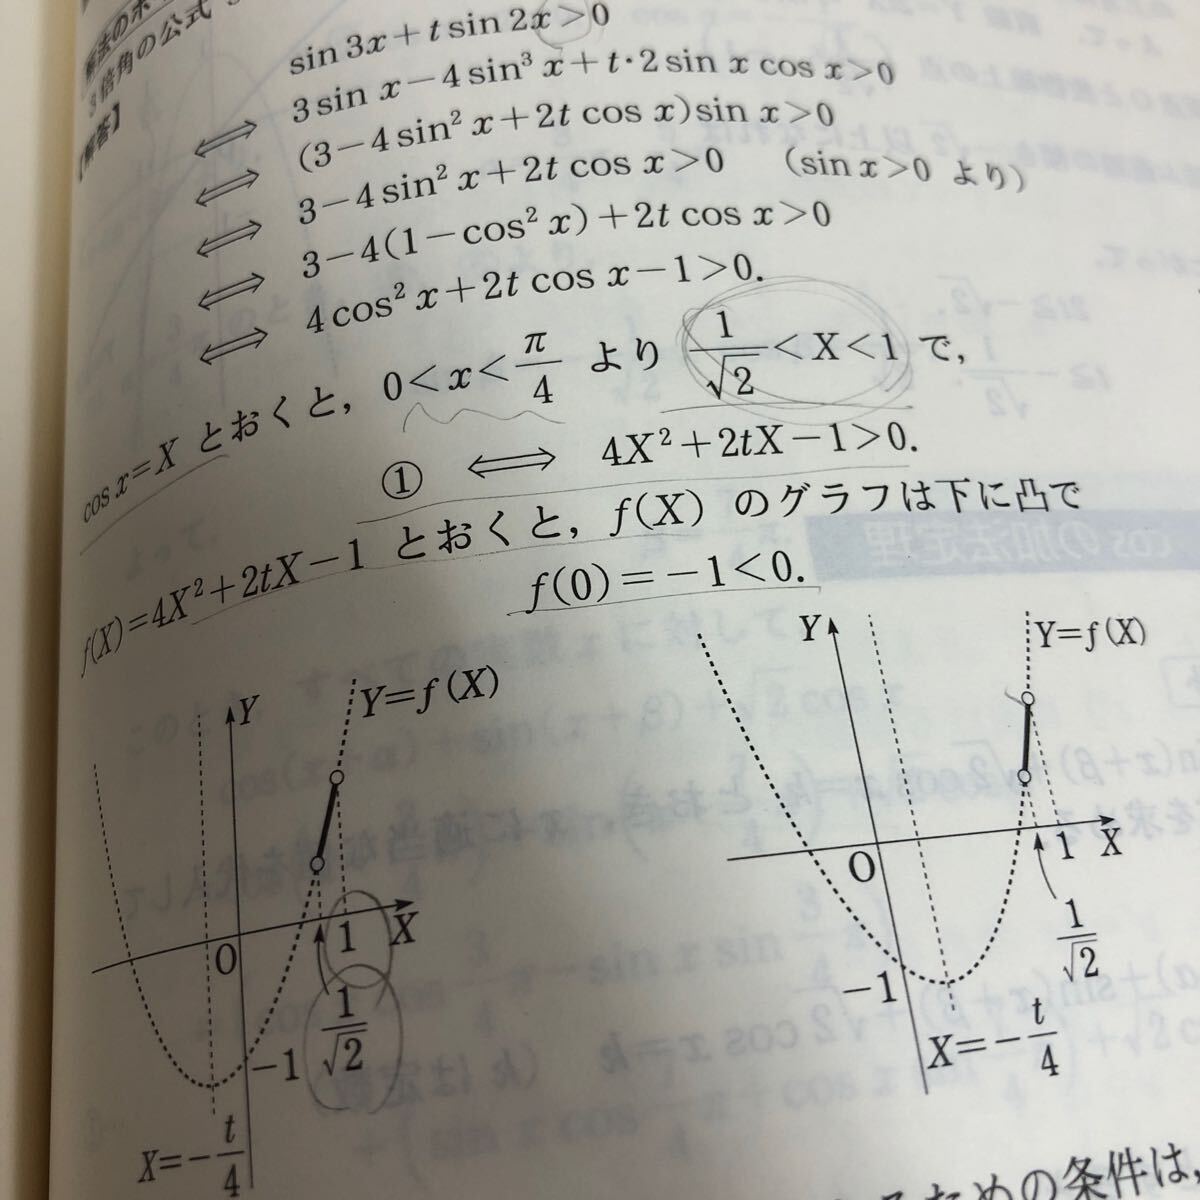 解法のポ
3倍角の公式
【解答】
sin 3x + t sin 2x > 0
⟺ 3 sin x − 4 sin³ x + t・2 sin x cos x > 0
⟺ (3 − 4 sin² x + 2t cos x) sin x > 0
⟺ 3 − 4 sin² x + 2t cos x > 0 (sin x > 0 より)
⟺ 3 − 4(1 − cos² x) + 2t cos x > 0
⟺ 4 cos² x + 2t cos x − 1 > 0.
cos x = X とおくと, 0 < x < π/4 より 1/√2 < X < 1 で,
① ⟺ 4X² + 2tX − 1 > 0.
f(X) = 4X² + 2tX − 1 とおくと, f(X) のグラフは下に凸で
f(0) = −1 < 0.
Y
Y=f(X)
O
1
X
1/√2
−1
X=−t/4
Y
Y=f(X)
O
1
X
1/√2
−1
X=−t/4
るための条件は,